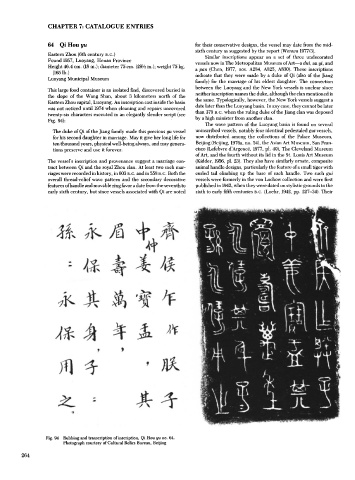 CHAPTER 7: CATALOGUE ENTRIES
64 Qi Hou yu
Eastern Zhou (6th century B.C.)
Found 1957, Luoyang, Henan Province
Luoyang Municipal Museum
This large food container is an isolated find, discovered buried in
the slope of the Mang Shan, about 5 kilometers north of the
Eastern Zhou capital, Luoyang. An inscription cast inside the basin
was not noticed until
when cleaning and repairs uncovered
twenty-six characters executed in an elegantly slender script (see
Fig. 94):
The duke of Qi of the Jiang family made this precious yu vessel
for his second daughter in marriage. May it give her long life for
ten thousand years, physical well-being always, and may genera-
tions preserve and use it forever.
The vessel's inscription and provenance suggest a marriage con-
tract between Qi and the royal Zhou clan. At least two such mar-
riages were recorded in history, in 603 B.C. and in 558 B.C. Both the
overall thread-relief wave pattern and the secondary decorative
features of handle and movable ring favor a date from the seventh to
early sixth century, but since vessels associated with Qi are noted
for their conservative design, the vessel may date from the mid-
sixth century as suggested by the report (Wenwu
Similar inscriptions appear on a set of three unlacerated
vessels now in The Metropolitan Museum of Art—a dui, an yi, and
a pan
These inscriptions
indicate that they were made by a duke of Qi (also of the Jiang
family) for the marriage of his eldest daughter. The connection
between the Luoyang and the New York vessels is unclear since
neither inscription names the duke, although the clan mentioned is
the same. Typologically, however, the New York vessels suggest a
date later than the Luoyang basin. In any case, they cannot be later
than 378 B.C. when the ruling duke of the Jiang clan was deposed
by a high minister from another clan.
The wave pattern of the Luoyang basin is found on several
uninscribed vessels, notably four identical pedestaled gui vessels,
now distributed among the collections of the Palace Museum,
Beijing
the Asian Art Museum, San Fran-
cisco
The Cleveland Museum
of Art, and the fourth without its lid in the St. Louis Art Museum
They also have similarly ornate, composite
animal handle designs, particularly the feature of a small tiger with
curled tail climbing up the base of each handle. Two such gui
vessels were formerly in the von Lochow collection and were first
published in 1943, when they were dated on stylistic grounds to the
sixth to early fifth centuries B.C.
Their
齊侯乍作朕子
中仲姜寶盂其
眉壽萬年,
永保其身子:
孫:永保用之
Fig. 94 Rubbing and transcription of inscription, Qi Hou yu no. 64.
Photograph courtesy of Cultural Relics Bureau, Beijing
264